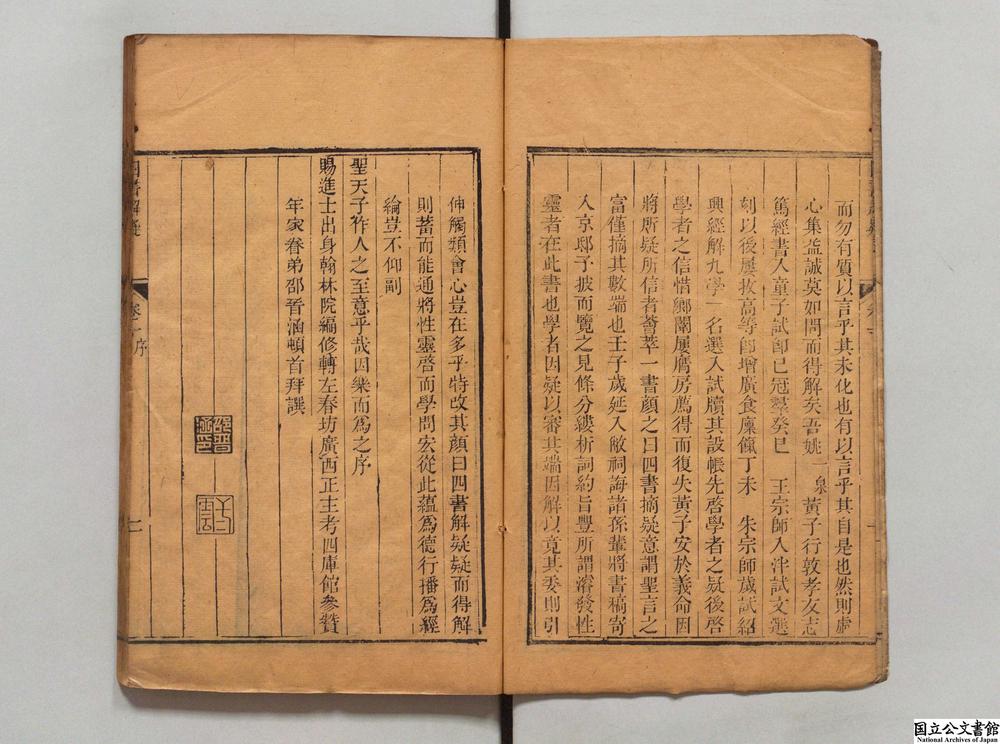 而勿有質以言乎其未化也有以言乎其自是也然則虛
心集益誠莫如問而得解矣吾姚一泉黃子行敦孝友志
篤經書入童子試即已冠羣癸巳 王宗師入泮試文選
刻以後屢拔高等即增廣食廩餼丁未 朱宗師歲試紹
興經解九學一名選入試牘其設帳先啓學者之疑後啓
學者之信惜鄉闈屢薦房薦得而復失黃子安於義命因
將所疑所信者薈萃一書顏之曰四書摘疑意謂聖言之
富僅摘其數端也壬子歲延入敝祠誨諸孫輩將書稿寄
入京邸予披而覽之見條分縷析詞約旨豐所謂濬發性
靈者在此書也學者因疑以審其端因解以竟其委則引
伸觸類會心豈在多乎特改其顏曰四書解疑疑而得解
則蓄而能通將性靈啓而學問宏從此蘊為德行播為經
綸豈不仰副
聖天子作人之至意乎哉因樂而為之序
賜進士出身翰林院編修轉左春坊廣西正主考四庫館參贊
年家眷弟邵晉涵頓首拜譔
邵晉涵印
四書解疑
卷一序
二
国立公文書館
National Archives of Japan